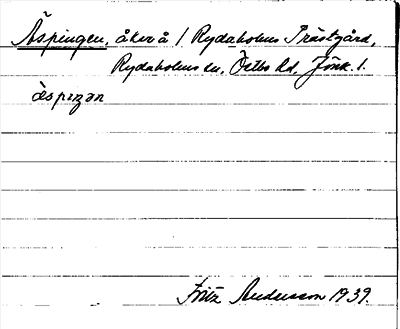 Äspingen, åker å 1 Rydaholms Prästgård,
Rydaholms sn, Östbo hd, Jönk. l.
äspiŋən
Fritz Andersson 1939.